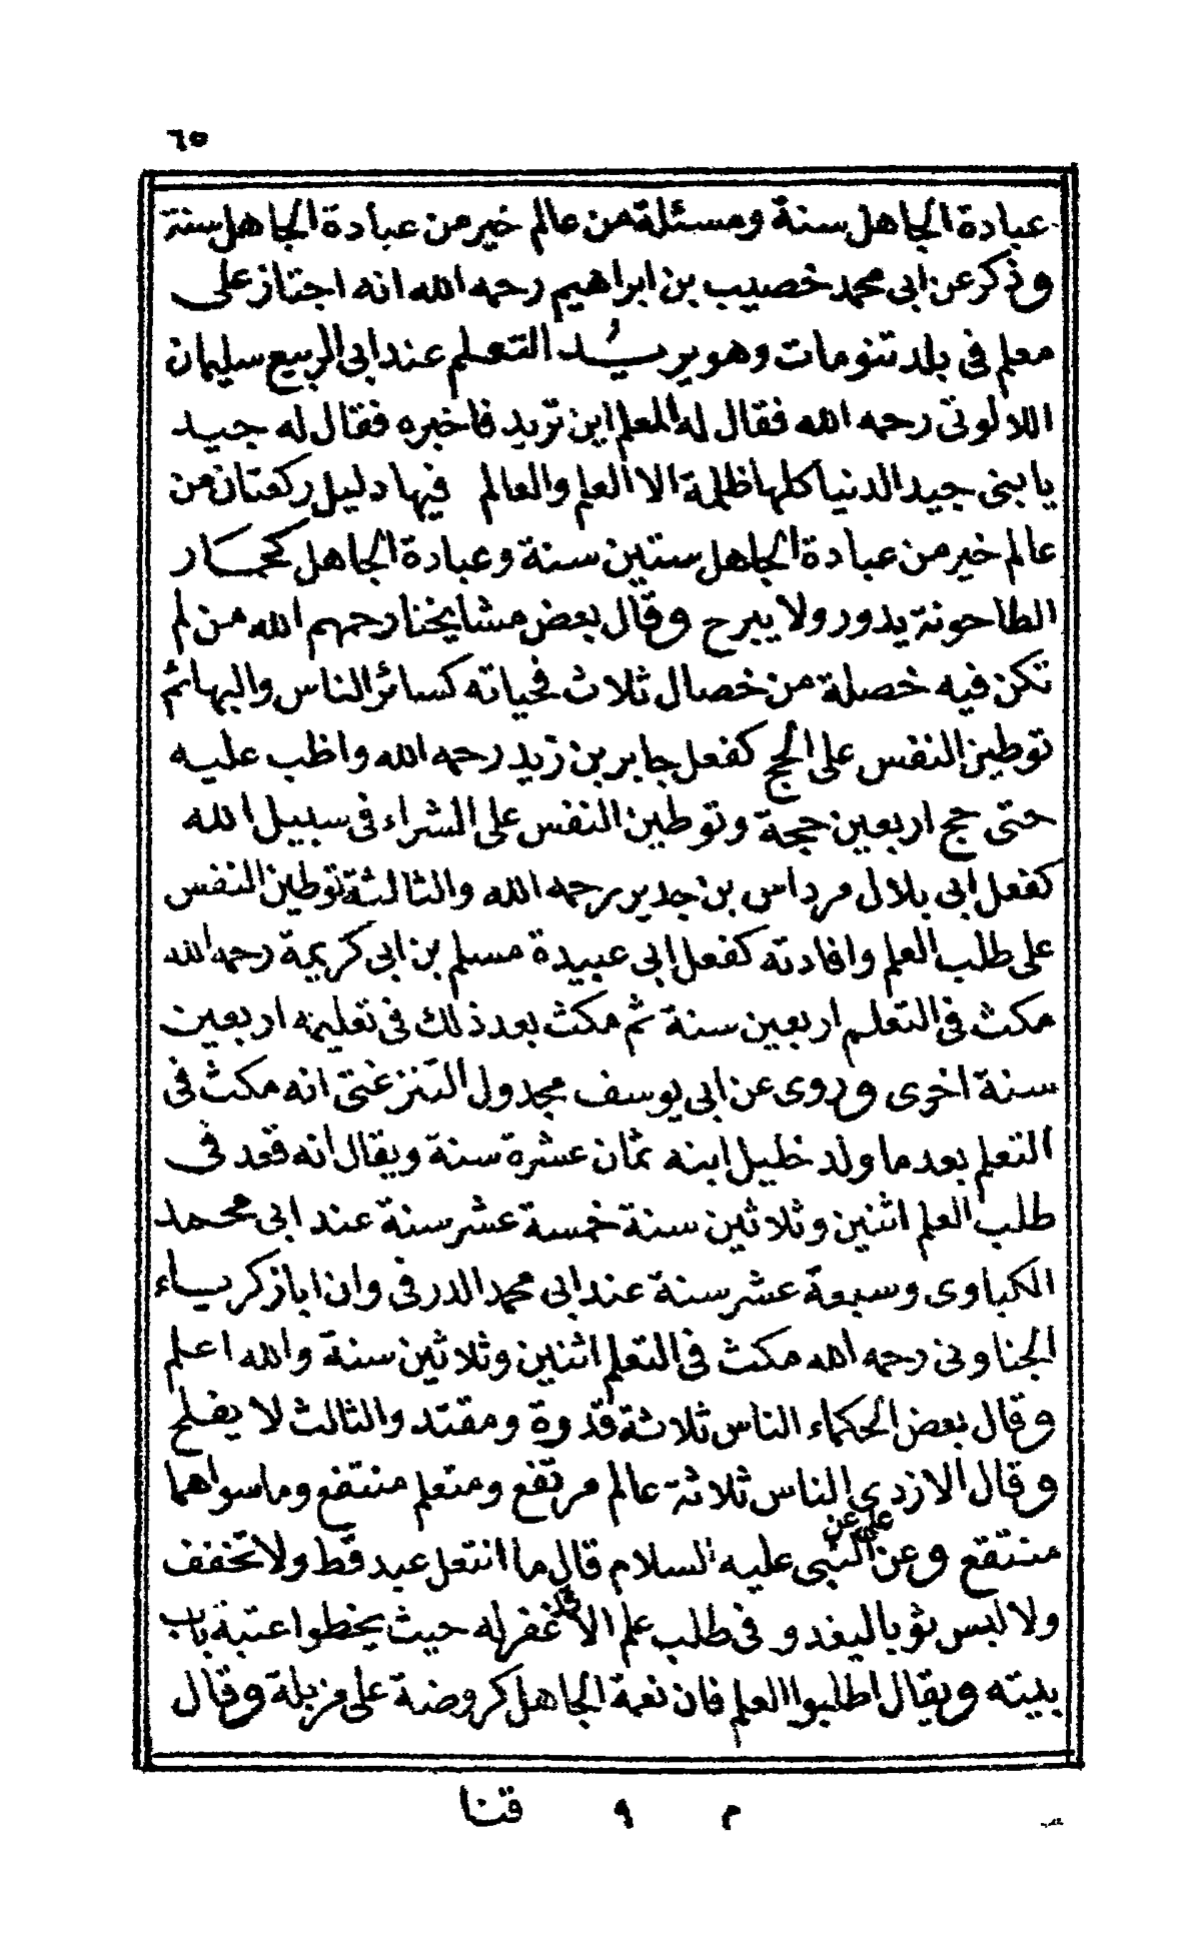 ٦٥
عبادة الجاهل سنة ومسئلة من عالم خير من عبادة الجاهل سنة
وذكر عن ابى محمد خصيب بن ابراهيم رحمه الله انه اجتاز على
معلم فى بلد تنومات وهو يريد التعلم عند ابى الربيع سليمان
اللالوتى رحمه الله فقال له المعلم اين تريد فاخبره فقال له جيد
يا بنى جيد الدنيا كلها ظلمة الا العلم والعالم فيها دليل ركعتان من
عالم خير من عبادة الجاهل ستين سنة وعبادة الجاهل كحمار
الطاحونة يدور ولا يبرح وقال بعض مشايخنا رحمهم الله من لم
تكن فيه خصلة من خصال ثلاث فحياته كسائر الناس والبهائم
توطين النفس على الحج كفعل جابر بن زيد رحمه الله واظب عليه
حتى حج اربعين حجة وتوطين النفس على الشراء فى سبيل الله
كفعل ابى بلال مرداس بن جدير رحمه الله والثالثة توطين النفس
على طلب العلم وافادته كفعل ابى عبيدة مسلم بن ابى كريمة رحمه الله
مكث فى التعلم اربعين سنة ثم مكث بعد ذلك فى تعليمه اربعين
سنة اخرى وروى عن ابى يوسف مجدول التنزغتى انه مكث فى
التعلم بعد ما ولد خليل ابنه ثمان عشرة سنة ويقال انه قعد فى
طلب العلم اثنين وثلاثين سنة خمسة عشر سنة عند ابى محمد
الكباوى وسبعة عشر سنة عند ابى محمد الدرفى وان ابا زكرياء
الجناونى رحمه الله مكث فى التعلم اثنين وثلاثين سنة والله اعلم
وقال بعض الحكماء الناس ثلاثة قدوة ومقتد والثالث لا يفلح
وقال الازدى الناس ثلاثة عالم مرتفع ومتعلم منتفع وما سواهما
منتقع وعن على عن النبى عليه السلام قال ما انتعل عبد قط ولا تخفف
ولا لبس ثوبا ليغدو فى طلب علم الا قد غفر له حيث يخطوا عتبة باب
بيته ويقال اطلبوا العلم فان نعمة الجاهل كروضة على مزبلة وقال
م ٩ قنا